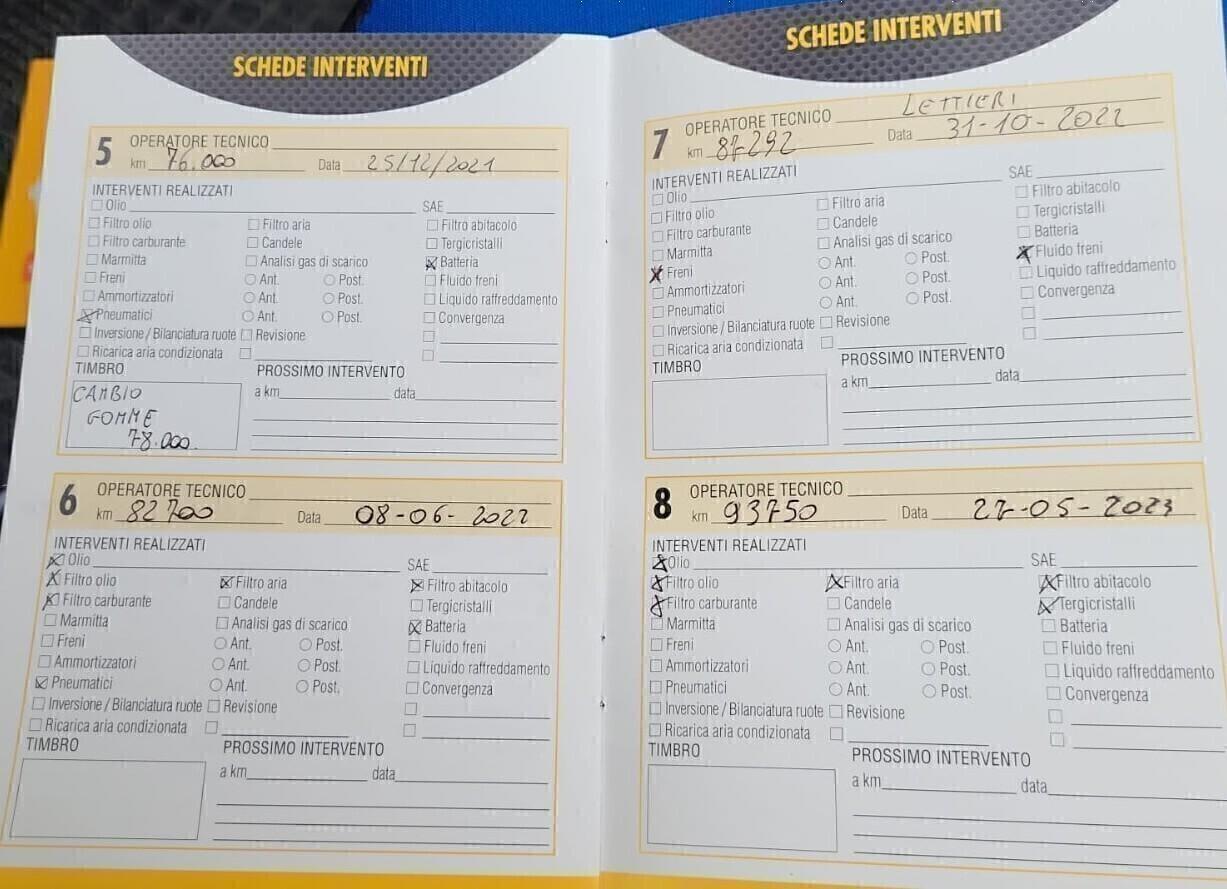 SCHEDE INTERVENTI
5 OPERATORE TECNICO
km 76.000 Data 25/12/2021
INTERVENTI REALIZZATI
Olio SAE
Filtro olio Filtro aria Filtro abitacolo
Filtro carburante Candele Tergicristalli
Marmitta Analisi gas di scarico Batteria
Freni Ant. Post. Fluido freni
Ammortizzatori Ant. Post. Liquido raffreddamento
Pneumatici Ant. Post. Convergenza
Inversione / Bilanciatura ruote Revisione
Ricarica aria condizionata
TIMBRO PROSSIMO INTERVENTO
CAMBIO a km data
GOMME
78.000
6 OPERATORE TECNICO
km 82700 Data 08-06-2022
INTERVENTI REALIZZATI
Olio SAE
Filtro olio Filtro aria Filtro abitacolo
Filtro carburante Candele Tergicristalli
Marmitta Analisi gas di scarico Batteria
Freni Ant. Post. Fluido freni
Ammortizzatori Ant. Post. Liquido raffreddamento
Pneumatici Ant. Post. Convergenza
Inversione / Bilanciatura ruote Revisione
Ricarica aria condizionata
TIMBRO PROSSIMO INTERVENTO
a km data
SCHEDE INTERVENTI
7 OPERATORE TECNICO LETTIERI
km 87292 Data 31-10-2022
INTERVENTI REALIZZATI
Olio SAE
Filtro olio Filtro aria Filtro abitacolo
Filtro carburante Candele Tergicristalli
Marmitta Analisi gas di scarico Batteria
Freni Ant. Post. Fluido freni
Ammortizzatori Ant. Post. Liquido raffreddamento
Pneumatici Ant. Post. Convergenza
Inversione / Bilanciatura ruote Revisione
Ricarica aria condizionata
TIMBRO PROSSIMO INTERVENTO
a km data
8 OPERATORE TECNICO
km 93750 Data 27-05-2023
INTERVENTI REALIZZATI
Olio SAE
Filtro olio Filtro aria Filtro abitacolo
Filtro carburante Candele Tergicristalli
Marmitta Analisi gas di scarico Batteria
Freni Ant. Post. Fluido freni
Ammortizzatori Ant. Post. Liquido raffreddamento
Pneumatici Ant. Post. Convergenza
Inversione / Bilanciatura ruote Revisione
Ricarica aria condizionata
TIMBRO PROSSIMO INTERVENTO
a km data